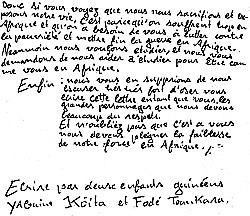 Donc si vous voyez que nous nous sacrifions et ex-
posons notre vie, c'est parce qu'on souffre trop en
Afrique et qu'on a besoin de vous à lutter contre
la pauvreté et mettre fin la guerre en Afrique.
Néanmoin nous voulons étudier, et nous vous
demandons de nous aider à étudier pour être com
me vous en Afrique.
Enfin: nous vous en supprions de nous
excuser très très fort d'oser vous
ecrire cette lettre entant que vous, les
grandes personnages que nous devons
beaucoup du respets.
Et n'oubliez pas que c'est a vous
nous devons pleigner la faiblesse
de notre force en Afrique.
Ecrire par deux enfants guinéens
Yaguine Koïta et Fodé Tounkara.